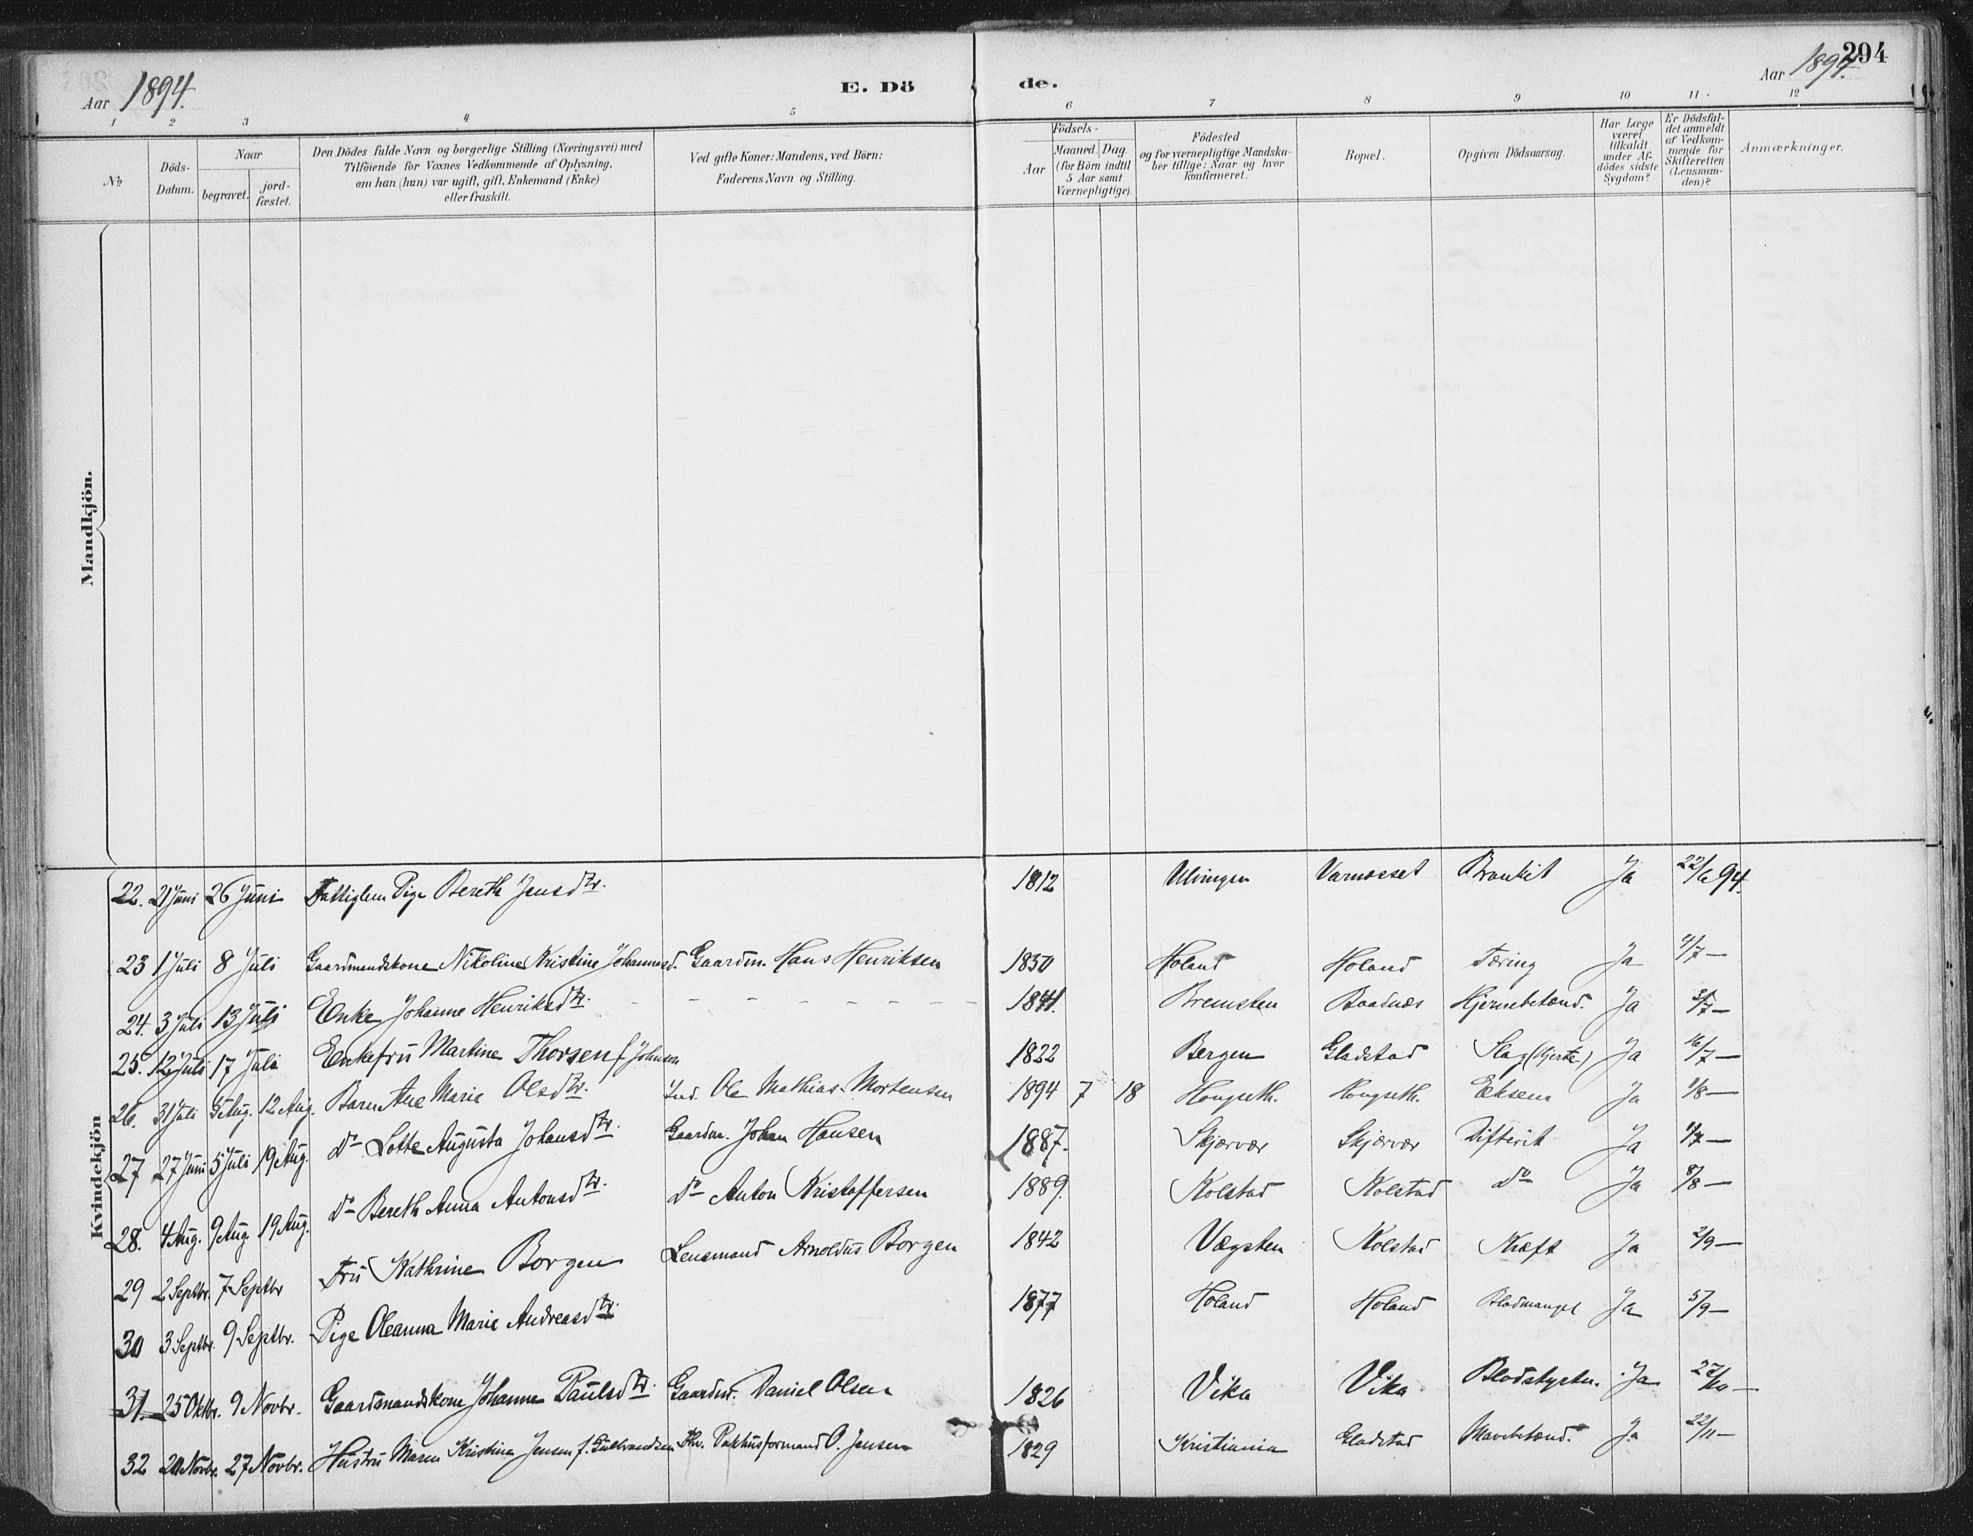 294
Aar 1894. E. Dö de. Aar 1894.
1 2 3 4 5 6 7 8 9 10 11. 12
No Döds-Datum. Naar begravet. jord-fæstet. Den Dödes fulde Navn og borgerlige Stilling (Næringsvei) med Tilföiende for Voxnes Vedkommende af Oplysning, om han (hun) var ugift, gift, Enkemand (Enke) eller fraskilt. Ved gifte Koner: Mandens, ved Börn: Faderens Navn og Stilling. Födsels- Aar Maaned. Dag. (for Börn indtil 5 Aar samt Værnepligtige). Födested og for værnepligtige Mandskaber tillige: Naar og hvor konfirmeret. Bopæl. Opgiven Dödsaarsag. Har Læge været tilkaldt under Afdödes sidste Sygdom? Er Dödsfaldet anmeldt af Vedkommende for Skifteretten (Lensmanden)? Anmærkninger.
Mandkjön.
Kvindekjön
22. 21 Juni 26 Juni Fattiglem Pige Bereth Jensdtr. 1812 Ulvingen Varnæsset Bronkit Ja 22/6 94.
23 1 Juli 8 Juli Gaardmandskone Nikoline Kristine Johannesd. Gaardm. Hans Henriksen 1850 Holand Holand Tæring Ja 4/7 —
24. 3 Juli 13 Juli Enke Johanne Henriksdtr. - - - - - - - - 1841. Bremsten Baadnæs Hjernebetænd. Ja 3/7 —
25. 12 Juli 17 Juli Enkefru Martine Thorsen f. Johnsen 1822 Bergen Gladstad Slag (Hjerte) Ja 16/7 —
26. 31 Juli 5 Aug. 12 Aug. Barn Ane Marie Olsdtr. Ind. Ole Mathias Mortensen 1894 7 18 Hongseth. Hongseth. Eksem Ja 1/8 —
27 27 Juni 5 Juli 19 Aug. Do Lotte Augusta Johansdtr. Gaardm. Johan Hansen 1887. Skjærvær Skjærvær Difterit Ja 1/7 —
28. 4 Aug. 9 Aug. 19 Aug. Do Bereth Anna Antonsdtr. Do Anton Kristoffersen 1889. Kolstad Kolstad Do Ja 8/8 —
29 2 Septbr. 7 Septbr Fru Kathrine Borgen Lensmand Arnoldus Borgen 1842 Vægsten Kolstad Kræft Ja 2/9 —
30 3 Septbr. 9 Septbr. Pige Oleanna Marie Andreasdtr. 1877 Holand Holand Blodmangel Ja 5/9 —
31. 25 Oktbr. 9 Novbr. Gaardmandskone Johanne Paulsdtr. Gaardm. Daniel Olsen 1826 Vika Vika Blodstyrtn. Ja 27/10 —
32 20 Novbr. 27 Novbr. Hustru Maren Kristina Jensen f. Gulbrandsen Fhv. Pakhusformand O. Jensen 1829 Kristiania Gladstad Mavebetænd. Ja 22/11 —